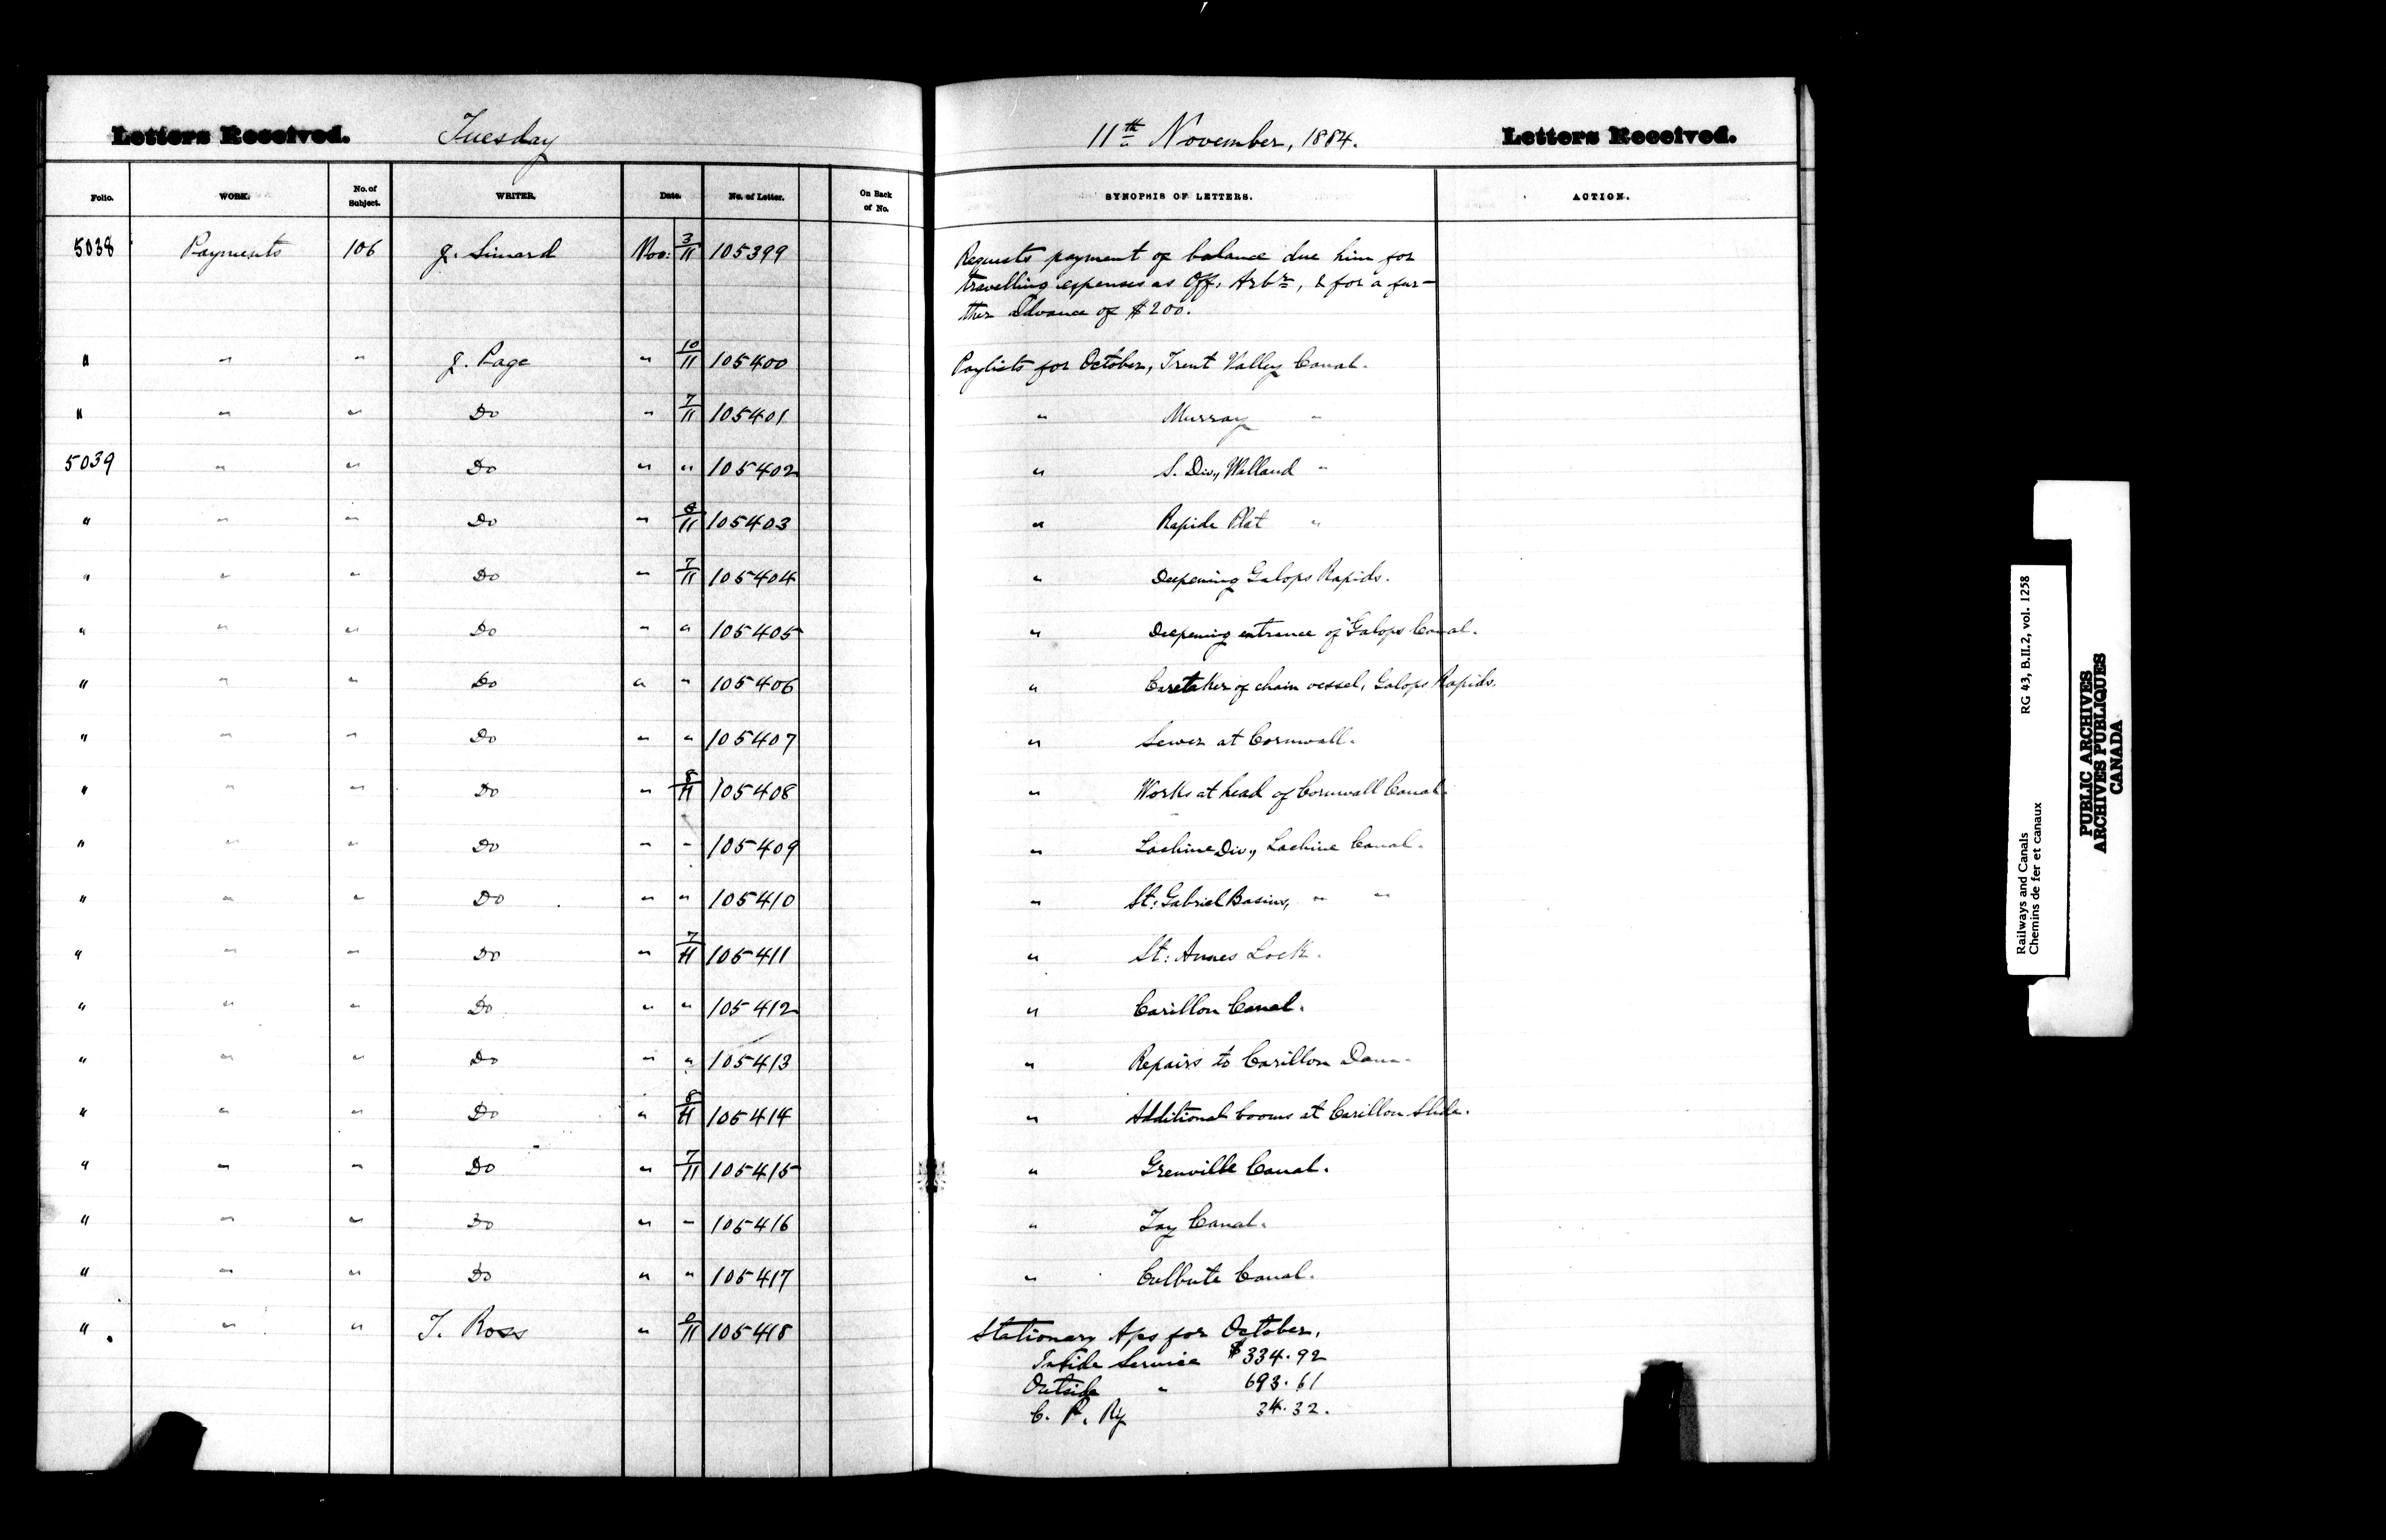 Letters Received. Tuesday 11th November, 1884. Letters Received.
Folio. WORK. No. of Subject. WRITER. Date. No. of Letter. On Back of No. SYNOPSIS OF LETTERS. ACTION.
5038 Payments 106 J. Simard Nov: 3/11 105399 Requests payment of balance due him for
travelling expenses as Off. Arbr, & for a fur-
ther advance of $200.
" " " J. Page " 10/11 105400 Paylists for October, Trent Valley Canal.
" " " Do " 7/11 105401 " Murray "
5039 " " Do " " 105402 " S. Div., Welland "
" " " Do " 8/11 105403 " Rapide Plat "
" " " Do " 7/11 105404 " Deepening Galops Rapids.
" " " Do " " 105405 " Deepening entrance of Galops Canal.
" " " Do " " 105406 " Caretaker of chain vessel, Galops Rapids.
" " " Do " " 105407 " Sewer at Cornwall.
" " " Do " 8/11 105408 " Works at head of Cornwall Canal.
" " " Do " " 105409 " Lachine Div., Lachine Canal.
" " " Do " " 105410 " St: Gabriel Basins, " "
" " " Do " 7/11 105411 " St: Annes Lock.
" " " Do " " 105412 " Carillon Canal.
" " " Do " " 105413 " Repairs to Carillon Dam.
" " " Do " 8/11 105414 " Additional booms at Carillon Slide.
" " " Do " 7/11 105415 " Grenville Canal.
" " " Do " " 105416 " Tay Canal.
" " " Do " " 105417 " Culbute Canal.
" " " T. Ross " /11 105418 Stationary A/cs for October.
Inside Service $334.92
Outside " 693.61
C. P. Ry 34.32.
Railways and Canals RG 43, B.II.2, vol. 1258
Chemins de fer et canaux
PUBLIC ARCHIVES
ARCHIVES PUBLIQUES
CANADA